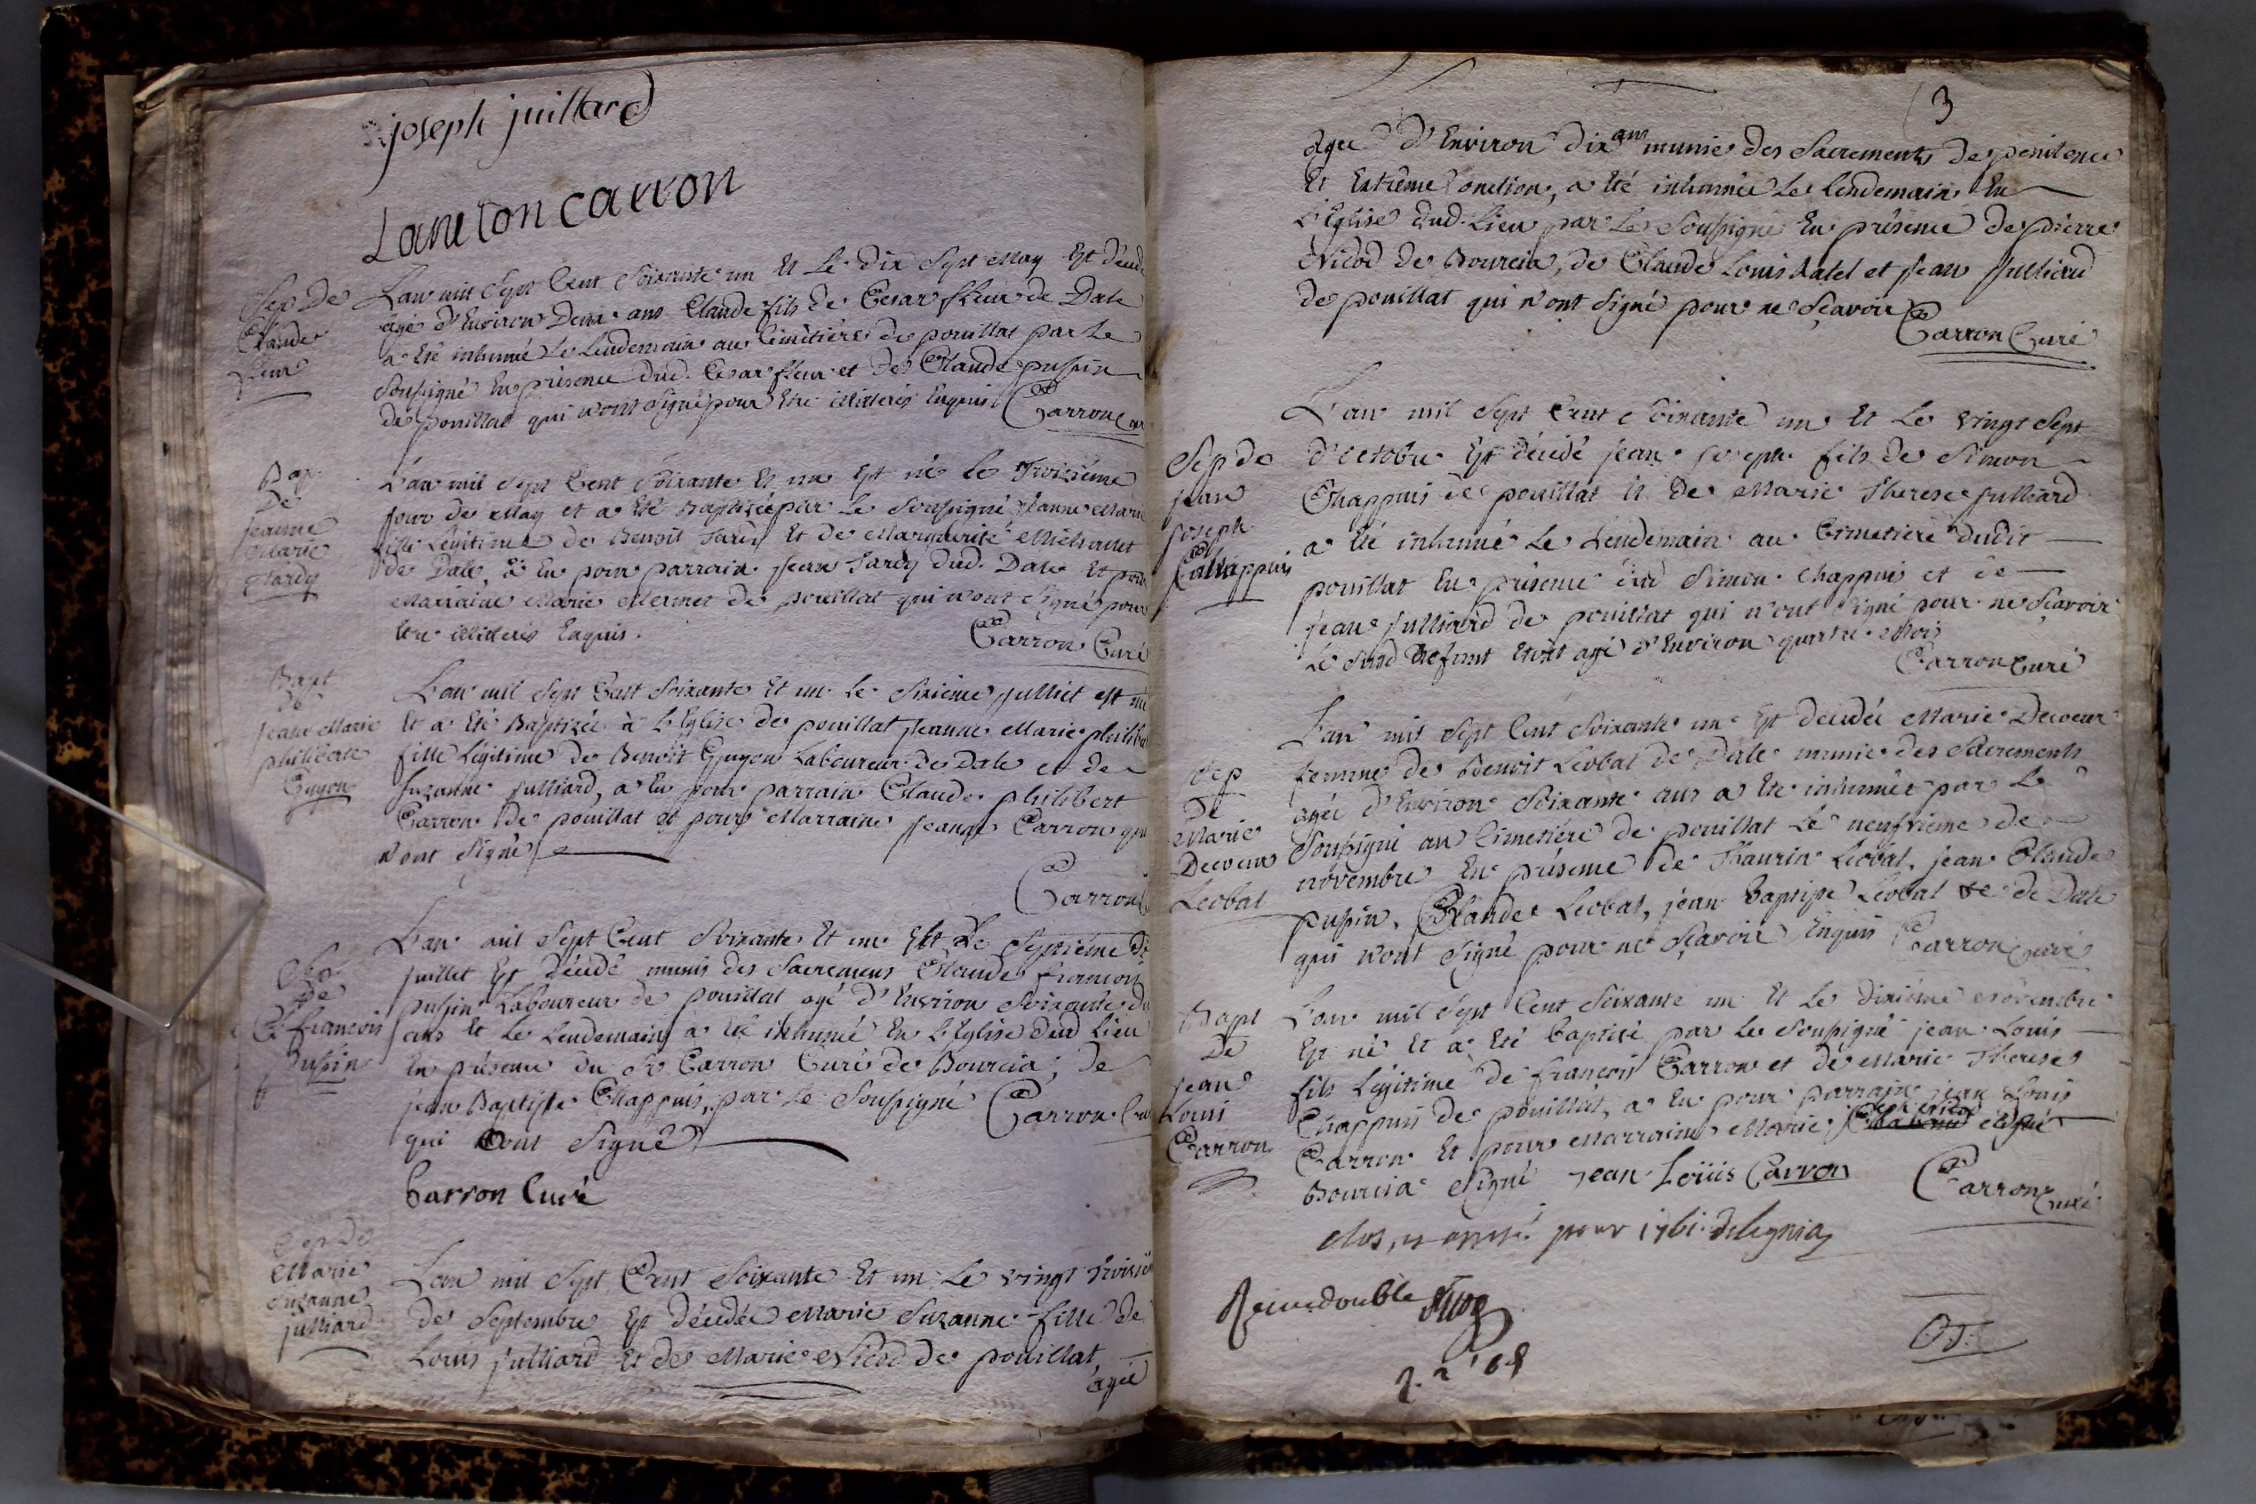 joseph juillard
carron
Sep. De
Claude
fleur
L'an mil Sept Cent Soixante un Et Le dix Sept May Est décédé
âgé d'Environ Deux ans Claude fils de Cesar fleur de Dale
a Eté inhumé Le Lendemain au Cimêtiére de pouillat par Le
Soussigné En présence dud. Cesar fleur et de Claude pussin
de pouillat qui n'ont signé pour Etre illiterés Enquis. Carron
Bap.
De
jeanne
Marie
Tardy
L'an mil Sept Cent Soixante Et un Est né le Troisiéme
jour de May et a Eté Baptizée par Le Soussigné jeanne Marie
fille Légitime de Benoit Tardy Et de Marguerite
de Dale, a Eu pour parrain jean Tardy dud. Dale Et pour
Marraine Marie Mermet de pouillat qui n'ont Signé pour
Etre illiterés Enquis.
Carron Curé
Bapt
De
jeane Marie
philiberte
Guyon
L'an mil Sept Cent Soixante Et un le Sixième julliet est né
Et a Eté Baptizée à L'Eglise de pouillat jeanne Marie philibe
fille Légitime de Benoit Guyon Laboureur de Dale et de
Suzanne julliard, a Eu pour parrain Claude philibert
Carron de pouillat et pour Marraine jeanne Carron qui
n'ont Signé
Carron
Sep
De
C. françois
pussin
L'an mil Sept Cent Soixante Et un Et Le Septiéme De
juillet Est décédé munis des Sacremens Claude françois
pussin Laboureur de pouillat agé d'Environ Soixante dix
ans Et Le Lendemain a Eté inhumé En L'Eglise dud Lieu
En présence du Sr Carron Curé de Bourcia, de
jean Baptiste Chappuis, par Le Soussigné Carron Curé
qui ont Signé
Carron Curé
Sep De
Marie
Suzanne
julliard
L'an mil Sept Cent Soixante Et un Le vingt troisié
de Septembre Est Décédée Marie Suzanne fille de
Louis julliard Et de Marie Nicod de pouillat,
agée
3
Agée d'Environ dix ans munie des Sacrements de pénitence
Et Extrême onction, a Eté inhumée Le Lendemain En
L'Eglise dud. Lieu par Le Soussigné En présence de pierre
Nicod de Bourcia, de Claude Louis Ratel et jean julliard
de pouillat qui n'ont Signé pour ne Sçavoir
Carron Curé
Sep de
jean
joseph
Chappuis
L'an mil Sept Cent Soixante un Et Le vingt Sept
d'octobre Est décédé jean joseph fils de Simon
Chappuis de pouillat Et De Marie Therese julliard
a Eté inhumé Le Lendemain au Cimetiere dudit
pouillat En présence dud Simon Chappuis et de
jean julliard de pouillat qui n'ont Signé pour ne Sçavoir
Le Susd Défunt Etoit agé d'Environ quatre Mois
Carron Curé
Sep
De
Marie
Decoeur
Leobal
L'an mil Sept Cent Soixante un Est décédée Marie Decoeur
femme de Benoit Leobal de Dale munie des Sacrements
agée d'Environ Soixante ans a Eté inhumée par Le
Soussigné au Cimetiére de pouillat Le neufvieme de
novembre En présence de Thaurin Leobal, jean Claude
pussin, Claude Leobal, jean Baptiste Leobal de Dale
qui n'ont Signé pour ne Sçavoir Enquis Carron Curé
Bapt
De
jean
Louis
Carron
L'an mil Sept Cent Soixante un Et Le dixiéme novembre
Est né Et a Eté Baptisé par Le Soussigné jean Louis
fils Légitime de françois Carron et de Marie Therese
Chappuis de pouillat, a Eu pour parrain jean Louis
Carron Et pour Marraine Marie
Bourcia Signé jean Loüis Carron
Carron Curé
clos, et arresté pour 1761.